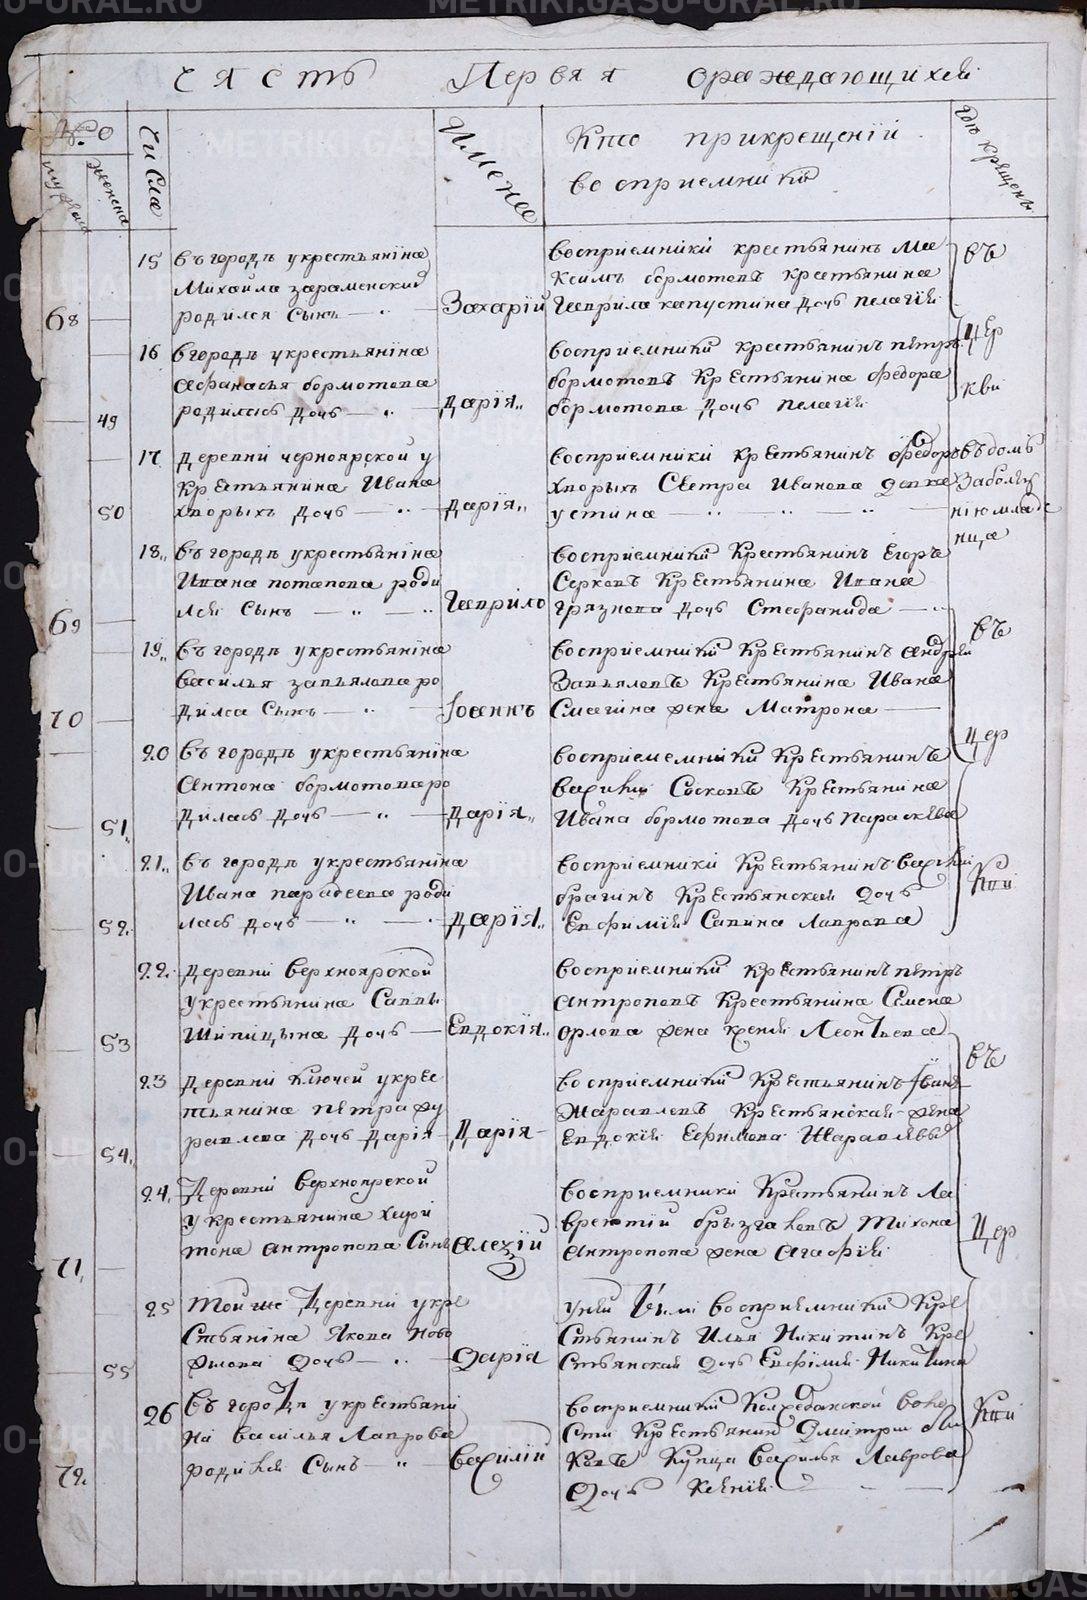 часть Первая ораждающихся
№о
мужеска
женска
числа
Имена
Кто прикрещенiи
восприемники
где крещены
15 въ городѣ укрестьянiна
Михайла зараменский
родился Сынъ
68
Захарiй
восприемнiкi крестьянинъ Ма
Ксимъ бормотовъ крестьянина
Гаврила капустина дочь пелагiя
въ
16 вгородѣ укрестьянiна
афанасья бормотова
родилась дочь
49
дарiя
восприемники крестьянинъ пѣтръ
бормотовъ Крестьянiна федора
бормотова дочь пелагiя
цер
кви
17 деревни черноярской у
Крестьянiна Ивана
хворыхъ дочь
50
дарiя
восприемнiкi крестьянинъ федоръ
хворыхъ Сестра Иванова девка
устина
въдомѣ
Заболез
нiю младе
нца
18 въ городѣ укрестьянiна
Ивана потапова роди
лся Сынъ
69
Гаврiло
восприемники Крестьянинъ Егоръ
Серковъ Крестьянина Ивана
грязнова дочь Стефанида
19 въ городѣ укрестьянiна
василья завьяловаро
дился Сынъ
70
Iоаннъ
восприемники Крестьянинъ андрей
Завьяловъ Крестьянина Ивана
Смагiна жена Матрона
въ
цер
20 въ городѣ укрестьянiна
Антона бормотоваро
дилась дочь
51
дарiя
восприемемники Крестьянинъ
Василий Сосковъ Крестьянiна
Ивана бормотова дочь параскѣва
21 въ городѣ укрестьянiна
Ивана парадеева роди
лась дочь
52
дарiя
восприемникi Крестьянинъ Василий
брагинъ Крестьянская дочь
Евфимiя Савина Лаврова
кви
22 деревни верхноярской
укрестьянина Саввы
Шипицына дочь
53
Евдокiя
восприемники крестьянинъ пѣтръ
антроповъ Крестьянина Семена
орлова жена ксенiя Леонтьева
23 деревни ключей укрес
тьянина пѣтра жу
равлева дочь дарiя
54
дарiя
восприемники Крестьянинъ Iванъ
Жаравлевъ Крестьянская жена
Евдокiя Ефимова Жаравлѣва
въ
24 деревни верхноярской
укрестьянина хари
тона антропова Сынъ
71
алезiй
восприемники Крестьянинъ Ла
врентiй брызгаловъ Тихона
антропова жена агафiя
цер
25 Тойже деревни укре
Стьянiна Якова Ново
жилова дочь
55
дарiя
унея были восприемники Кре
Стьянинъ Илья Никитинъ Кре
Стьянская дочь Евфiмия Никитина
26 въ городѣ укрестьяни
на василья Лаврова
родился Сынъ
72
василiй
восприемники Колчеданской воло
Сти Крестьянин Дмитри
Ковъ Купца василья Лаврова
дочь Ксенiя
кви